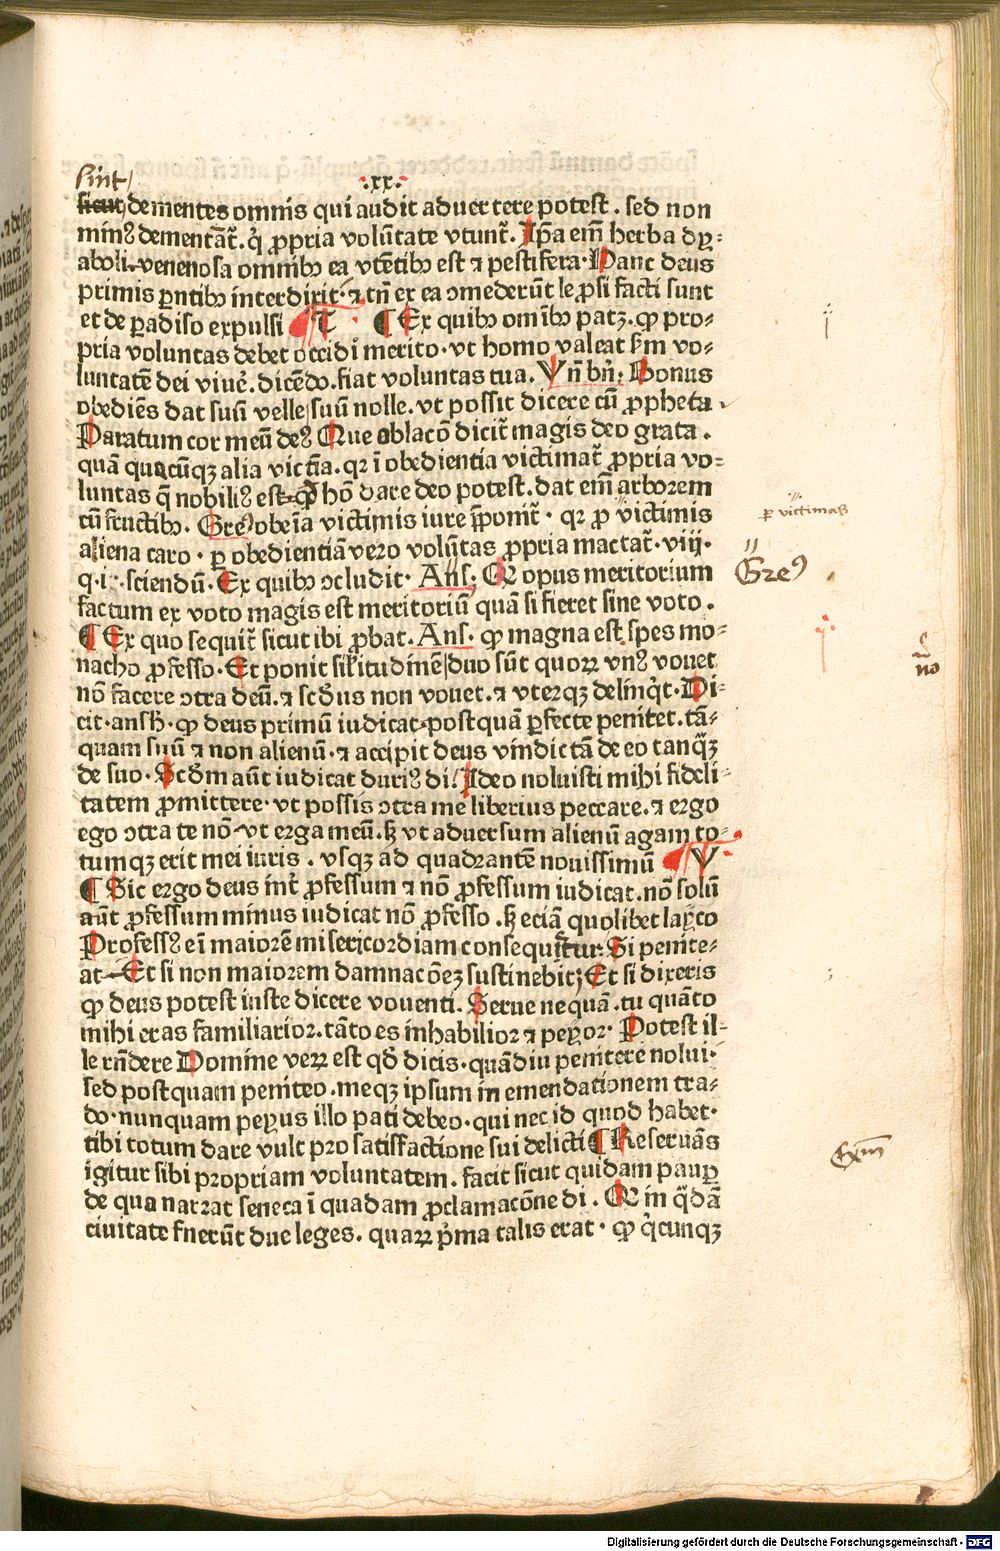 ·xx·
sint
sicut dementes omnis qui audit aduertere potest. sed non
minꝰ dementãt᷑. q̇ ꝓpria volũtate vtunt᷑. Ip̃a em̃ herba dẏ⸗
aboli. venenosa omnibꝫ ea vtẽtibꝫ est ⁊ pestifera· Hanc deus
primis ꝑntibꝫ interdixit· ⁊ tñ ex ea ↄmederũt leꝓsi facti sunt
et de ꝑadiso expulsi T ¶ Ex quibꝫ om̃ibꝫ patꝫ. ꝙ pro⸗
pria voluntas debet occidi merito· vt homo valeat s̃m vo⸗
luntatẽ dei viuẽ. dicẽdo. fiat voluntas tua. Vñ bñ; Bonus
obediẽs dat suũ velle suũ nolle. vt possit dicere cũ ꝓpheta
Paratum cor meũ deꝰ Que oblacõ dicit᷑ magis deo grata.
quã qua cũqꝫ alia victĩa. qꝛ ĩ obedientia victimat᷑ ꝓpria vo⸗
luntas q̃ nobiliꝰ est ꝙ̃ hõ dare deo potest. dat em̃ arborem
cũ fructibꝫ. Greꝰ obe ĩa victimis iure p̃ponit᷑· qꝛ ꝑ victimis
aliena caro· ꝑ obedientiã vero volũtas ꝓpria mactat᷑· viij·
q· i· sciendũ· Ex quibꝫ ↄcludit· Ans; Q opus meritorium
factum ex voto magis est meritoriũ quã si fieret sine voto.
¶ Ex quo sequit᷑ sicut ibi ꝓbat. Ans. ꝙ magna est spes mo⸗
nacho ꝓfesso· Et ponit sil̃itudinẽ duo sũt quoꝝ vnꝰ vouet
nõ facere ↄtra deũ. ⁊ scďus non vouet. ⁊ vterqꝫ delinq̇t. Di⸗
cit· ansh̃· ꝙ deus primũ iudicat postquã ꝑfecte penitet. tã⸗
quam suũ ⁊ non alienũ· ⁊ accipit deus vindictã de eo tanq̃ꝫ
de suo· Scďm aũt iudicat duriꝰ di! Ideo noluisti mihi fideli⸗
tatem ꝓmittere· vt possis ↄtra me liberius peccare. ⁊ ergo
ego ↄtra te nõ vt erga meũ. sꝫ vt aduersum alienũ agam to⸗
tumqꝫ erit mei iuris. vsqꝫ ad quadrantẽ nouissimũ V
¶ Sic ergo deus int᷑ ꝓfessum ⁊ nõ ꝓfessum iudicat. nõ solũ
aũt ꝓfessum minus iudicat nõ ꝓfesso. sꝫ eciã quolibet laẏco
Professꝰ eĩ maiorẽ misericordiam consequitur. Si penite⸗
at Et si non maiorem damnacõeꝫ sustinebit; Et si dixeris
ꝙ deus potest iuste dicere vouenti. Serue nequã. tu quãto
mihi eras familiarior. tãto es inhabilior ⁊ peẏor· Potest il⸗
le rñdere Domine veꝝ est qď dicis· quãdiu penitere nolui·
sed postquam peniteo. meqꝫ ipsum in emendationem tra⸗
do· nunquam peẏus illo pati debeo· qui nec id quod habet·
tibi totum dare vult pro satisfactione sui delicti ¶ Reseruãs
igitur sibi propriam voluntatem. facit sicut quidam pauꝑ
de qua narrat seneca ĩ quadam ꝓclamacõne di. Q in q̇dã
ciuitate fuerũt due leges. quaꝝ p̃ma talis erat· ꝙ q̇cunqꝫ
ꝑ victimas
Greꝰ
no
Exm̃
Digitalisierung gefördert durch die Deutsche Forschungsgemeinschaft - DFG